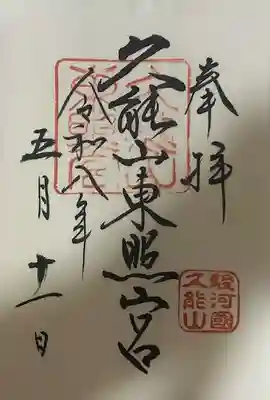 奉拝
久能山東照宮
令和八年
五月十一日
駿河國
久能山